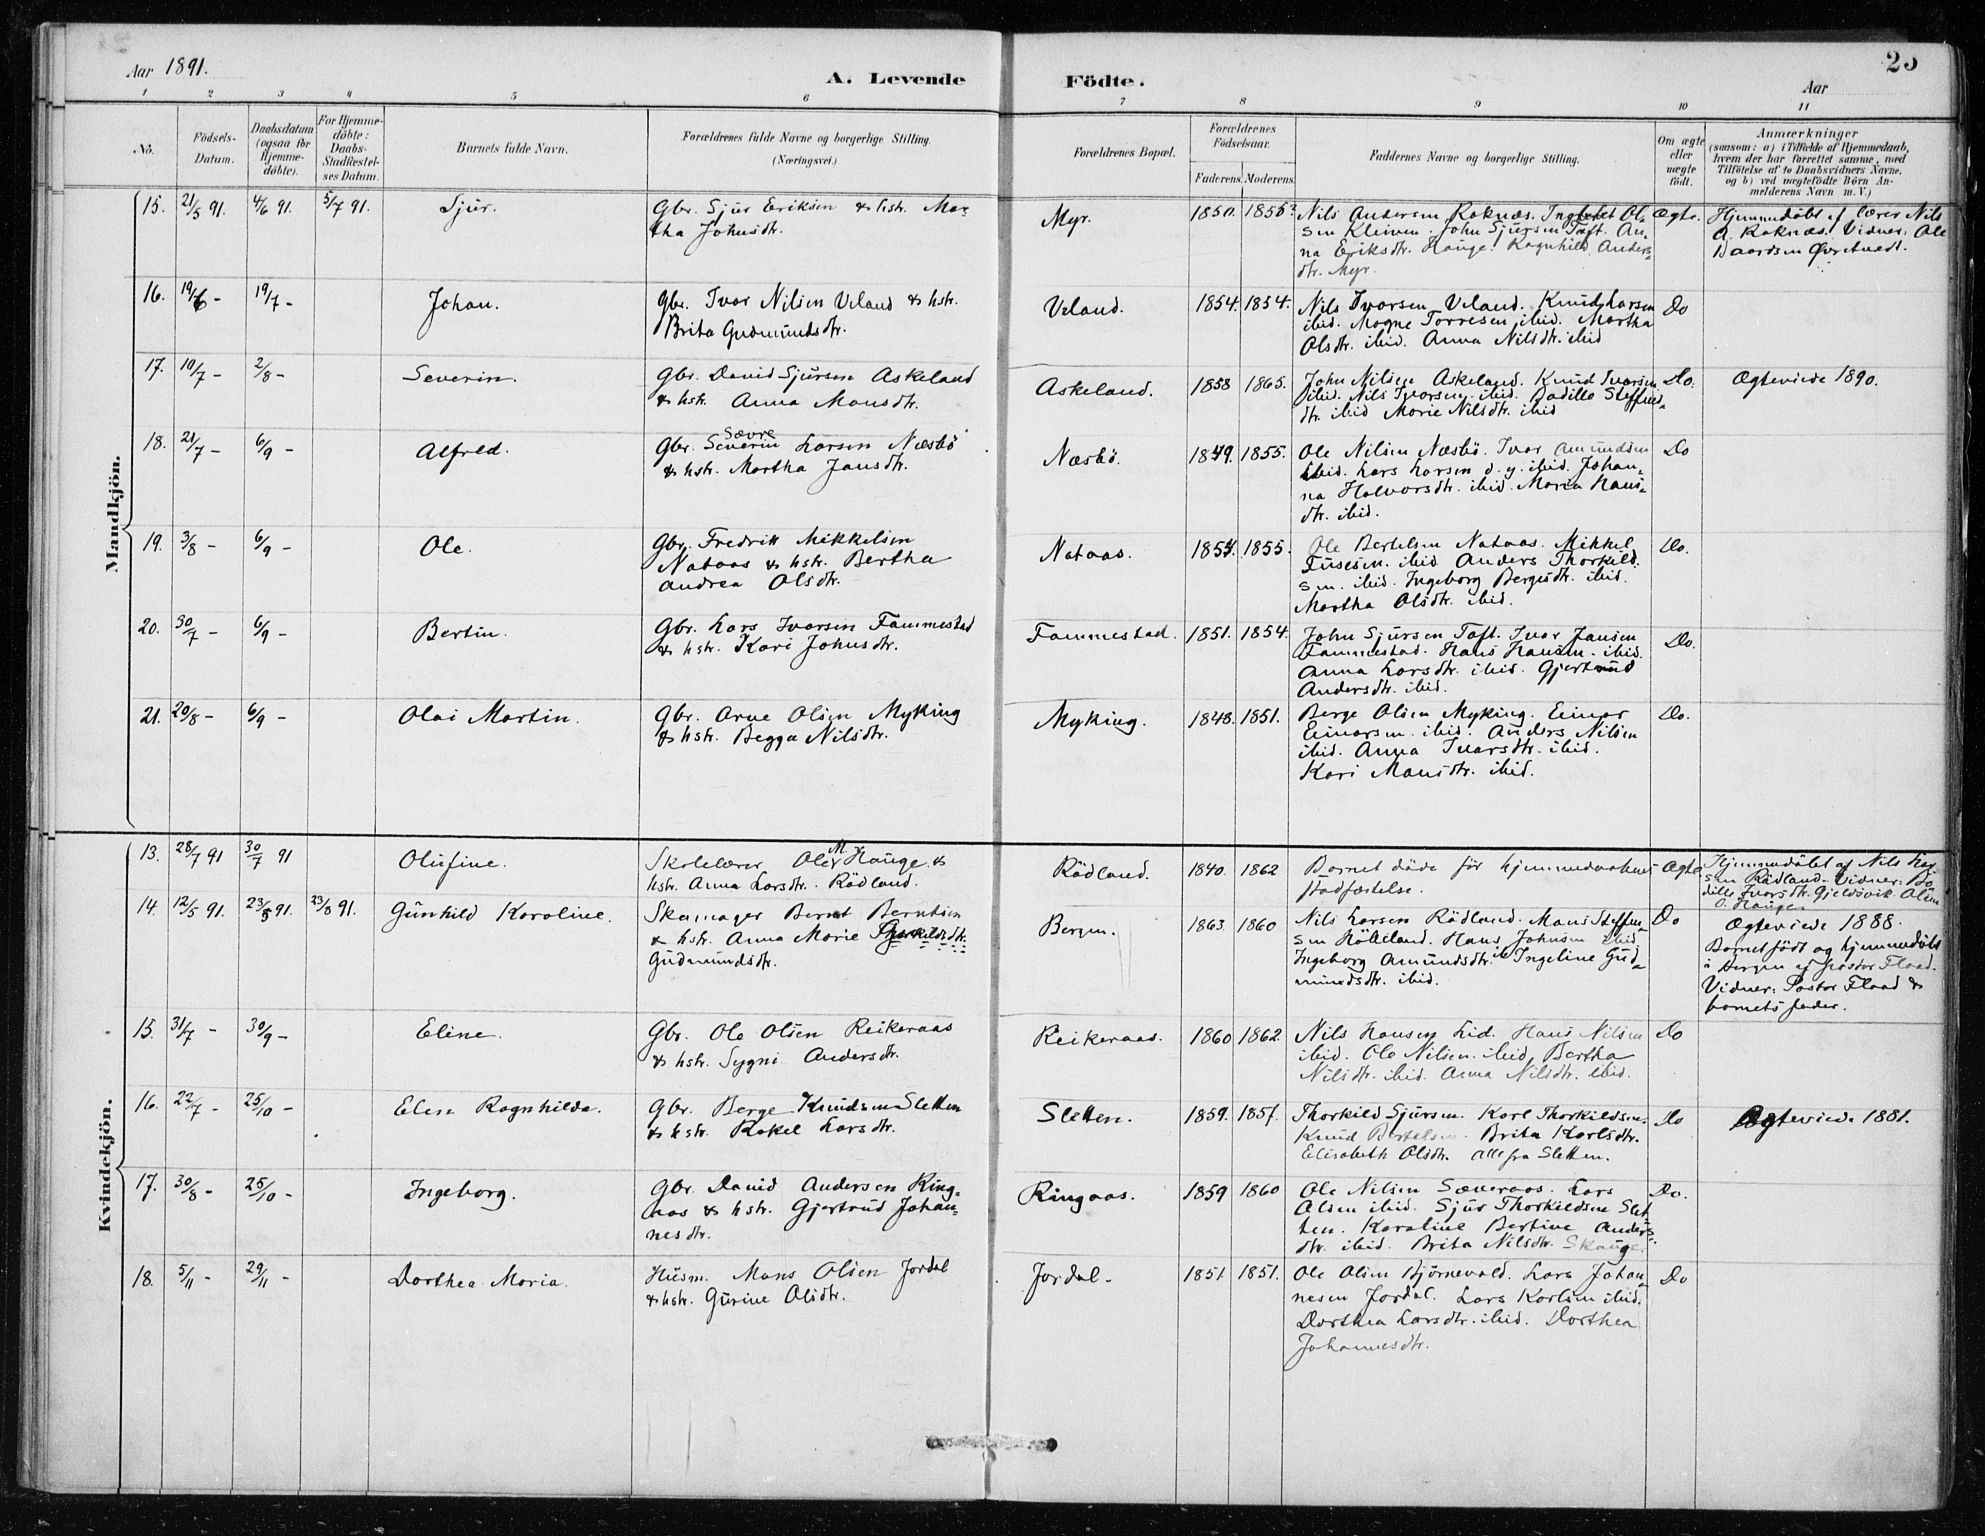 Aar 1891.
A. Levende Födte.
25
Aar
1 2 3 4 5 6 7 8 9 10 11
No.
Födsels-Datum.
Daabsdatum (ogsaa for Hjemme-döbte).
For Hjemme-döbte: Daabs-Stadfæstel-ses Datum.
Barnets fulde Navn.
Forældrenes fulde Navne og borgerlige Stilling. (Næringsvei.)
Forældrenes Bopæl.
Forældrenes Födselsaar.
Faderens. Moderens.
Faddernes Navne og borgerlige Stilling.
Om ægte eller uægte födt.
Anmærkninger
(saasom: a) i Tilfælde af Hjemmedaab, hvem der har forrettet samme, med Tilföielse af to Daabsvidners Navne. og b) ved uægtefödte Börn An-melderens Navn m. V.)
Mandkjön.
15. 21/5 91. 4/6 91. 5/7 91. Sjur. Gbr. Sjur Eriksen & hstr. Mar-
tha Johnsdtr. Myr. 1850. 1855? Nils Andersen Roknæs. Ingebret Ol-
sen Kleiven. John Sjursen Toft. An-
na Eriksdtr. Hauge. Ragnhild Anders-
dtr. Myr. Ægte. Hjemmedöbt af lærer Nils
A. Roknæs. Vidner: Ole
Baardsen Övretvedt.
16. 19/6 - 19/7 - Johan. Gbr. Ivar Nilsen Veland & hstr.
Brita Gudmundsdtr. Veland. 1854. 1854. Nils Ivarsen Veland. Knud Larsen
ibid. Mogne Torresen ibid. Martha
Olsdtr. ibid. Anna Nilsdtr. ibid Do
17. 10/7 - 2/8 - Severin. Gbr. David Sjursen Askeland
& hstr. Anna Monsdtr. Askeland. 1858 1865. John Nilsen Askeland. Knud Ivarsen
ibid. Nils Ivarsen ibid. Bodille Steffens-
dtr. ibid Marie Nilsdtr. ibid Do. Ægteviede 1890.
18. 21/7 - 6/9 - Alfred. Gbr. Severin Sævre Larsen Næsbö
& hstr. Martha Jansdtr. Næsbö. 1849. 1855. Ole Nilsen Næsbö. Ivar Amundsen
ibid. Lars Larsen d. y. ibid. Johan-
na Halvorsdtr. ibid. Maria Hans-
dtr. ibid. Do
19. 3/8 - 6/9 - Ole. Gbr. Fredrik Mikkelsen
Nataas & hstr. Bertha
Andrea Olsdtr. Nataas. 1854. 1855. Ole Bertelsen Nataas. Mikkel
Fusesen. ibid Anders Thorkild-
sen. ibid. Ingeborg Bergesdtr. ibid.
Martha Olsdtr. ibid. Do.
20. 30/7 - 6/9 - Bertin. Gbr. Lars Ivarsen Fammestad
& hstr. Kari Johnsdtr. Fammestad. 1851. 1854. John Sjursen Toft. Ivar Jansen
Fammestad. Hans Hansen. ibid.
Anna Larsdtr. ibid. Gjertrud
Andersdtr. ibid. Do.
21. 20/8 - 6/9 - Olai Martin. Gbr. Arne Olsen Myking
& hstr. Begga Nilsdtr. Myking. 1848. 1851. Berge Olsen Myking. Einar
Einarsen. ibid. Anders Nilsen
ibid. Anna Ivarsdtr. ibid.
Kari Mansdtr. ibid. Do.
Kvindekjön.
13. 28/7 91 30/7 91 Olufine. Skolelærer Ole M. Hauge &
hstr. Anna Larsdtr. Rödland. Rödland. 1840. 1862 Barnet döde för hjemmedaabens
stadfæstelse. Ægte Hjemmedöbt af Nils Lar-
sen Rödland. Vidner: Bo-
dille Ivarsdtr. Gjeldsvik. Olina
O. Hauge
14. 12/5 91. 23/5 91. 23/8 91. Gunhild Karoline. Skomager Bernt Berntsen
& hstr. Anna Marie Thorkildsdtr.
Gudmundsdtr. Bergen. 1863. 1860 Nils Larsen Rödland. Mans Steffen-
sen Räkeland. Hans Johnsen ibid
Ingeborg Amundsdtr. Ingeline Gud-
mundsdtr. ibid. Do Ægteviede 1888.
Barnet födt og hjemmedöbt
i Bergen af pastor Flood.
Vidner: Pastor Flood &
barnets fader.
15. 31/7 - 30/9 - Eline. Gbr. Ole Olsen Reikeraas
& hstr. Sygni Andersdtr. Reikeraas. 1860 1862. Nils Hansen Lid. Hans Nilsen
ibid. Ole Nilsen. ibid. Bertha
Nilsdtr. ibid. Anna Nilsdtr. ibid. Do
16. 22/7 - 25/10 - Elen Ragnhilda. Gbr. Berge Knudsen Sletten
& hstr. Rakel Larsdtr. Sletten. 1859. 1857. Thorkild Sjursen. Karl Thorkildsen.
Knud Bertelsen. Brita Karlsdtr.
Elisabeth Olsdtr. alle fra Sletten. Do Ægteviede 1881.
17. 30/8 - 25/10 - Ingeborg. Gbr. David Andersen Ring-
aas & hstr. Gjertrud Johan-
nesdtr. Ringaas. 1859 1860 Ole Nilsen Sæveraas. Lars
Olsen ibid. Sjur Thorkildsen Slet-
ten. Karoline Bertine Anders-
dtr. ibid. Brita Nilsdtr. Skauge. Do.
18. 5/11 - 29/11 - Dorthea Maria. Husm. Mans Olsen Jordal
& hstr. Gurine Olsdtr. Jordal. 1851 1851. Ole Olsen Björnevold. Lars Johan-
nesen Jordal. Lars Karlsen ibid.
Dorthea Larsdtr. ibid. Dorthea
Johannesdtr. Do